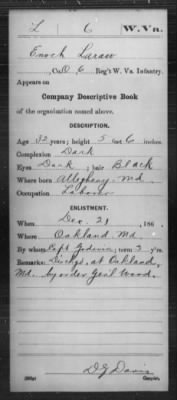 L 6 W. Va.
Enoch Laraw
Co. O, 6 Reg't W. Va. Infantry.
Appears on
Company Descriptive Book
of the organization named above.
DESCRIPTION.
Age 32 years; height 5 feet 6 inches.
Complexion Dark
Eyes Dark; hair Black
Where born Allegheny Md.
Occupation Laborer
ENLISTMENT.
When Dec. 21, 186 .
Where Oakland, Md.
By whom Capt. Godwin; term 3 y'rs.
Remarks: Disch'd. at Oakland,
Md. by order Genl Wood.
D G Davis
Copyist.